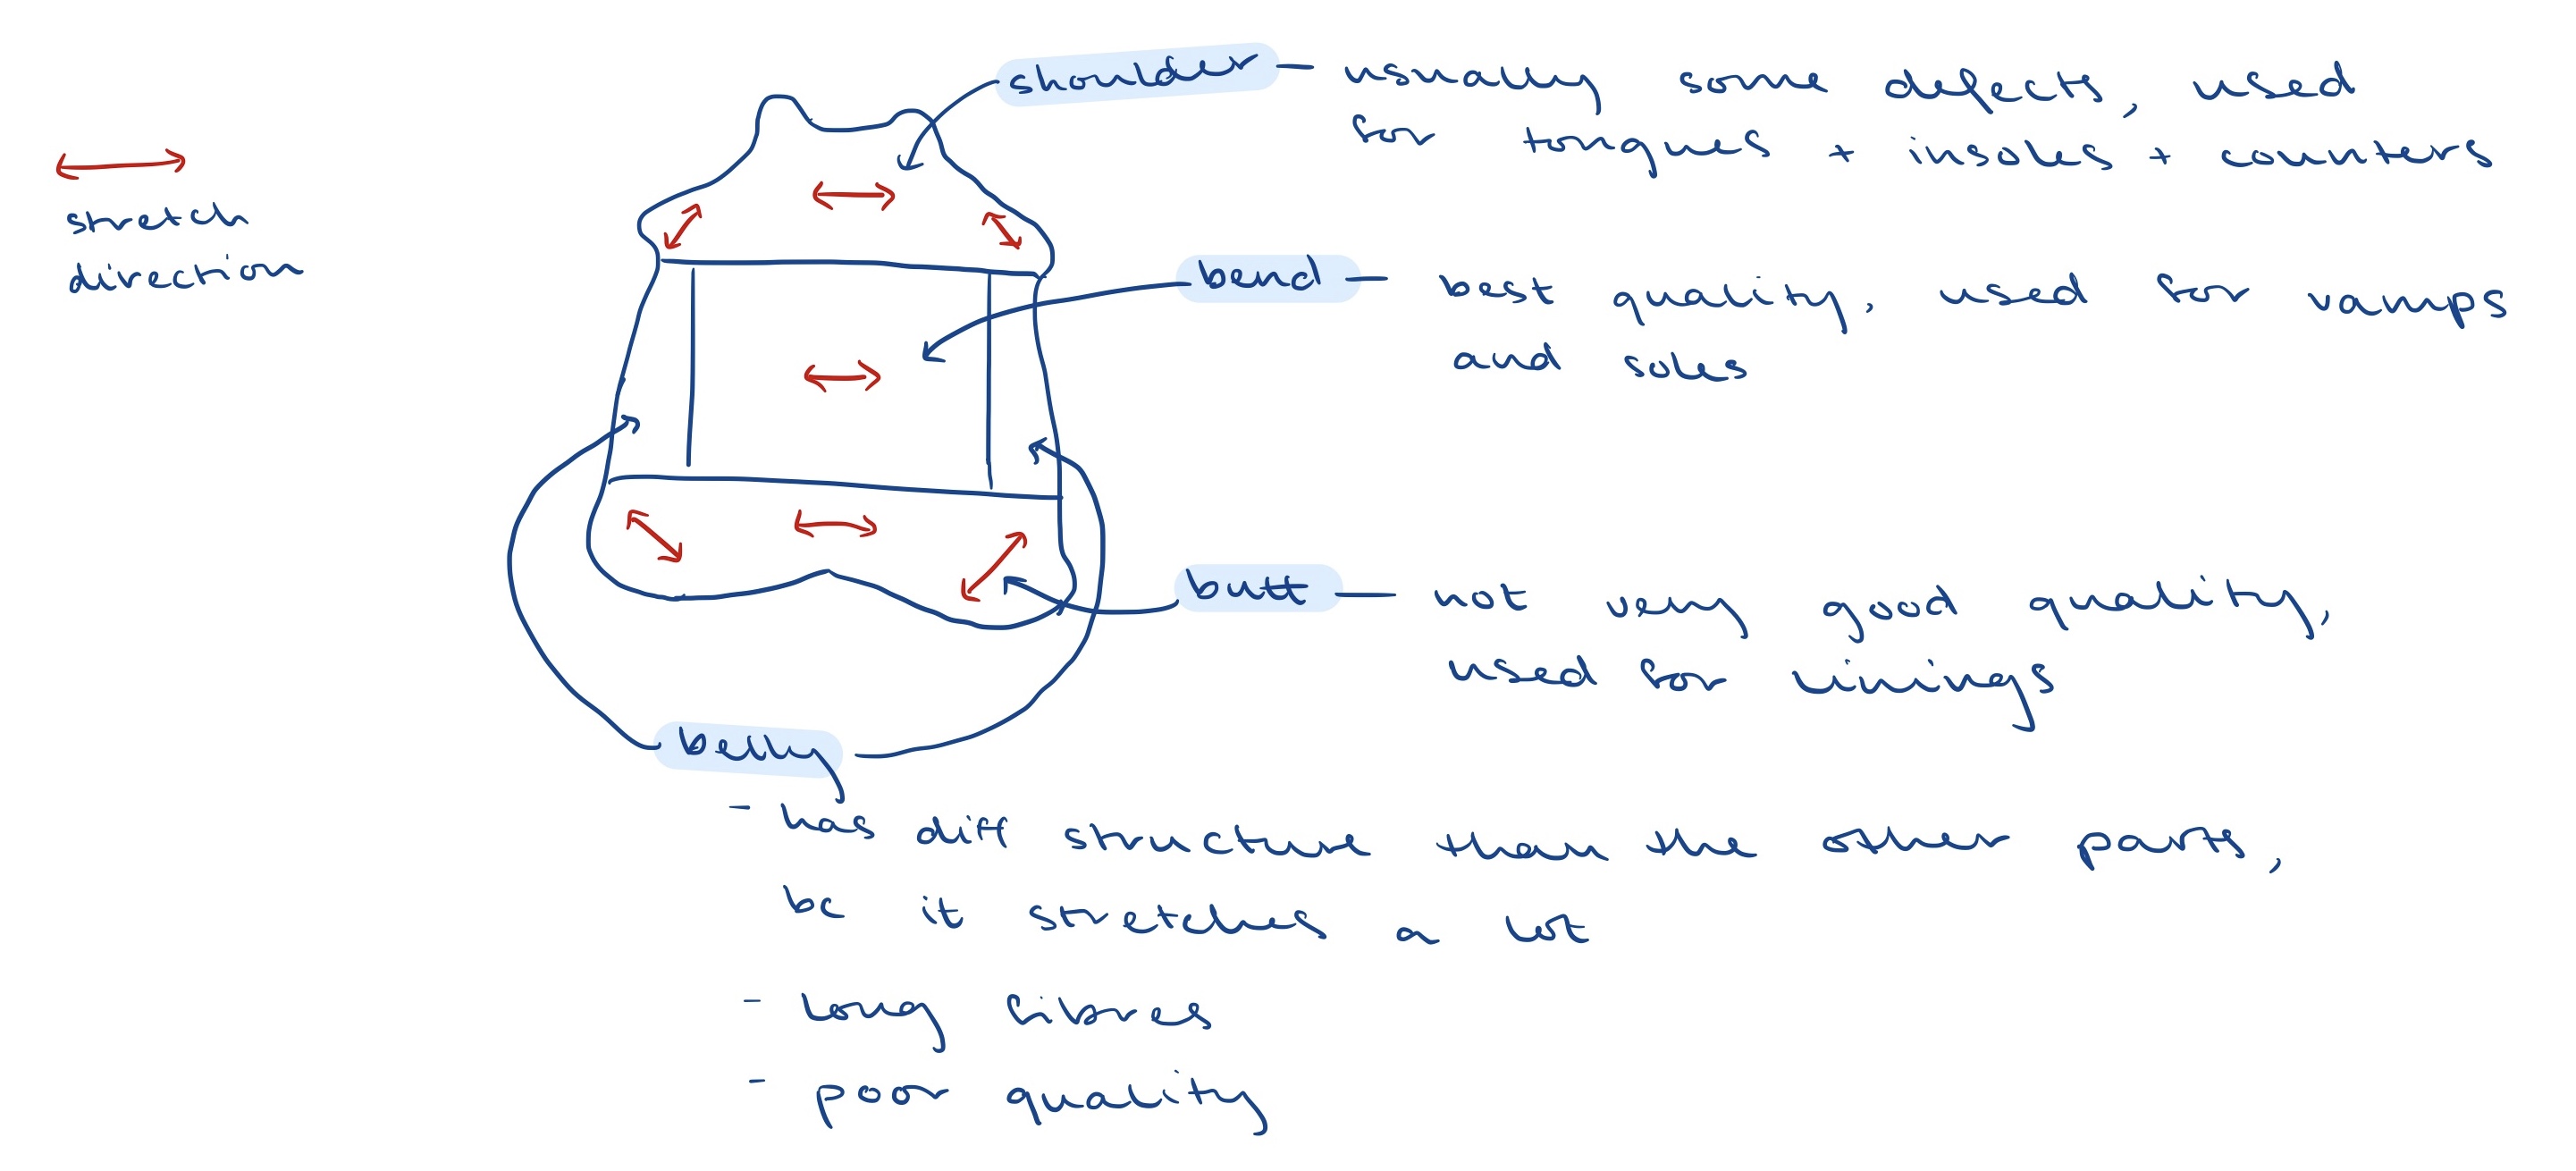 shoulder — usually some defects, used
for tongues + insoles + counters
stretch
direction
bend — best quality, used for vamps
and soles
butt — not very good quality,
used for linings
belly
- has diff structure than the other parts,
bc it stretches a lot
- long fibres
- poor quality